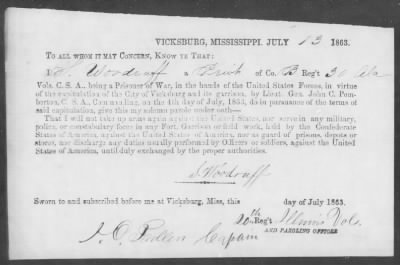 VICKSBURG, MISSISSIPPI. JULY 13 1863.
TO ALL WHOM IT MAY CONCERN, KNOW YE THAT:
I S. Woodruff a Privt of Co. B Reg't 30 Ala
Vols. C. S. A., being a Prisoner of War, in the hands of the United States Forces, in virtue
of the capitulation of the City of Vicksburg and its garrison, by Lieut. Gen. John C. Pem-
berton, C. S. A., Commanding, on the 4th day of July, 1863, do in pursuance of the terms of
said capitulation, give this my solemn parole under oath—
That I will not take up arms again against the United States, nor serve in any military,
police, or constabulary force in any Fort, Garrison or field work, held by the Confederate
States of America, against the United States of America, nor as guard of prisons, depots or
stores, nor discharge any duties usually performed by Officers or soldiers, against the United
States of America, until duly exchanged by the proper authorities.
S Woodruff
Sworn to and subscribed before me at Vicksburg, Miss., this day of July 1863.
20th Reg't Illinois Vols.
J. O. Pullen Captain AND PAROLING OFFICER